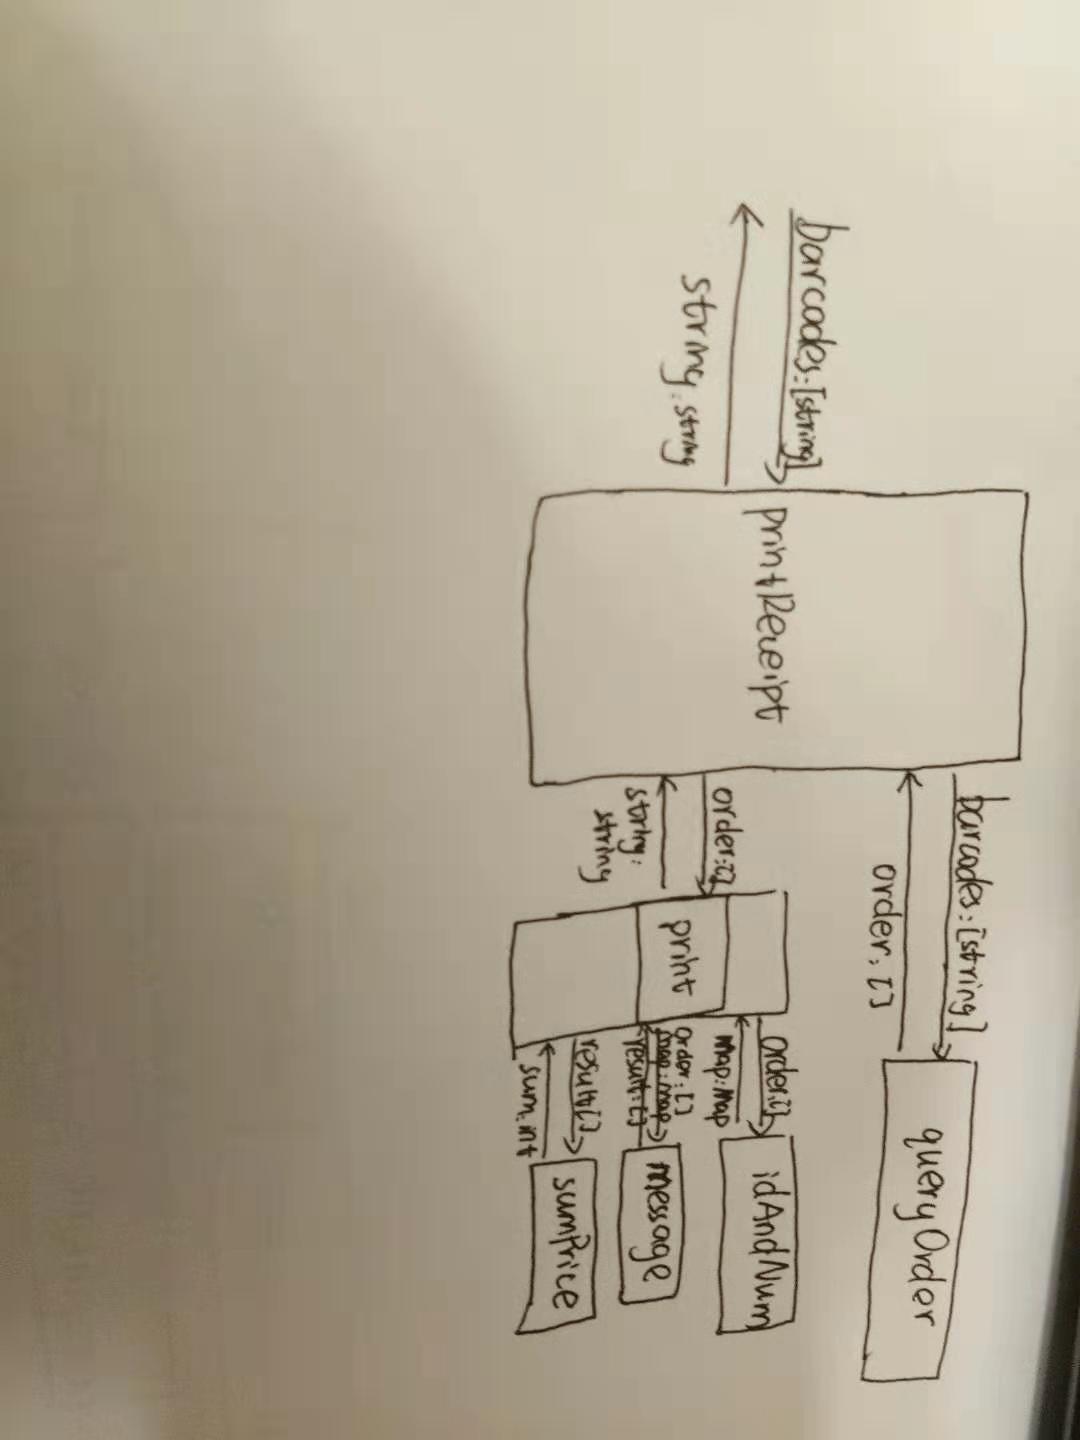 barcodes:[string]
string:string
printReceipt
barcodes:[string]
order:[]
queryOrder
order:[]
string:
string
print
order:[]
map:map
idAndNum
order:[]
map:map
result:[]
message
result[]
sum:int
sumPrice